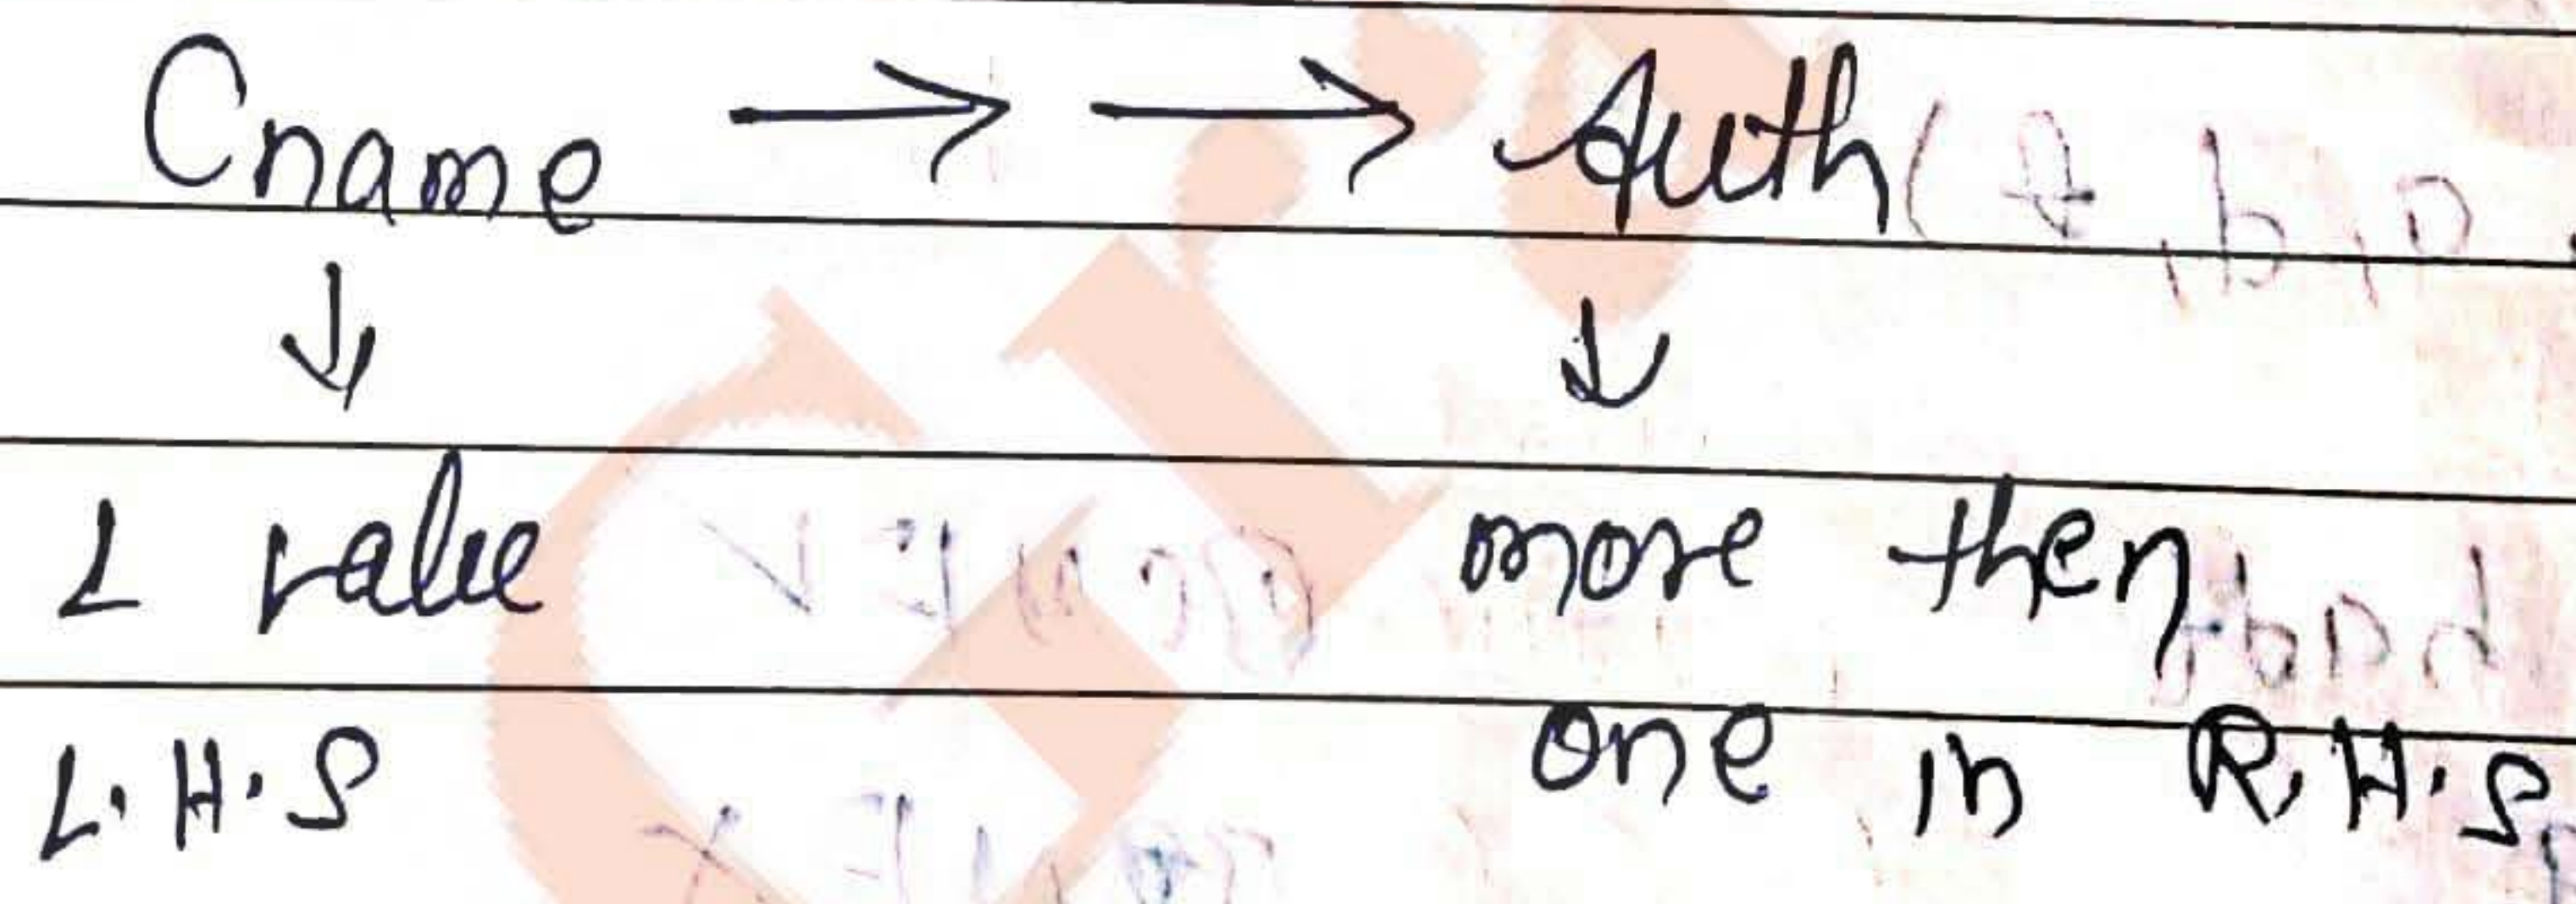 Cname →→ Auth
↓ ↓
L value more then
L.H.S one in R.H.S